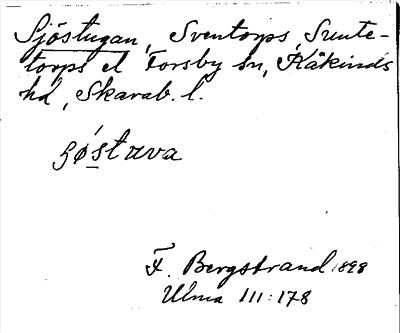 Sjöstugan, Sventorps, Sunte-
torps el Forsby sn, Kåkinds
hd, Skarab. l.
ʒǿstuva
F. Bergstrand 1898
Ulma 111:178